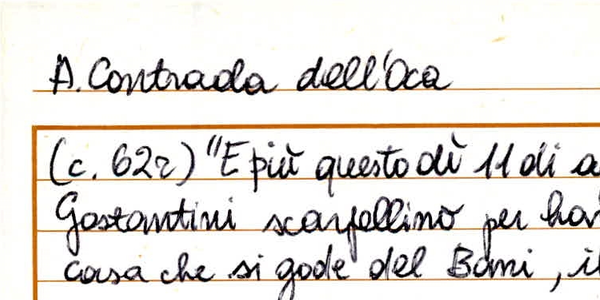 A. Contrada dell'Oca
(c. 62r) "E più questo dì 11 di a
Gostantini scarpellino per hav
casa che si gode del Bani, il